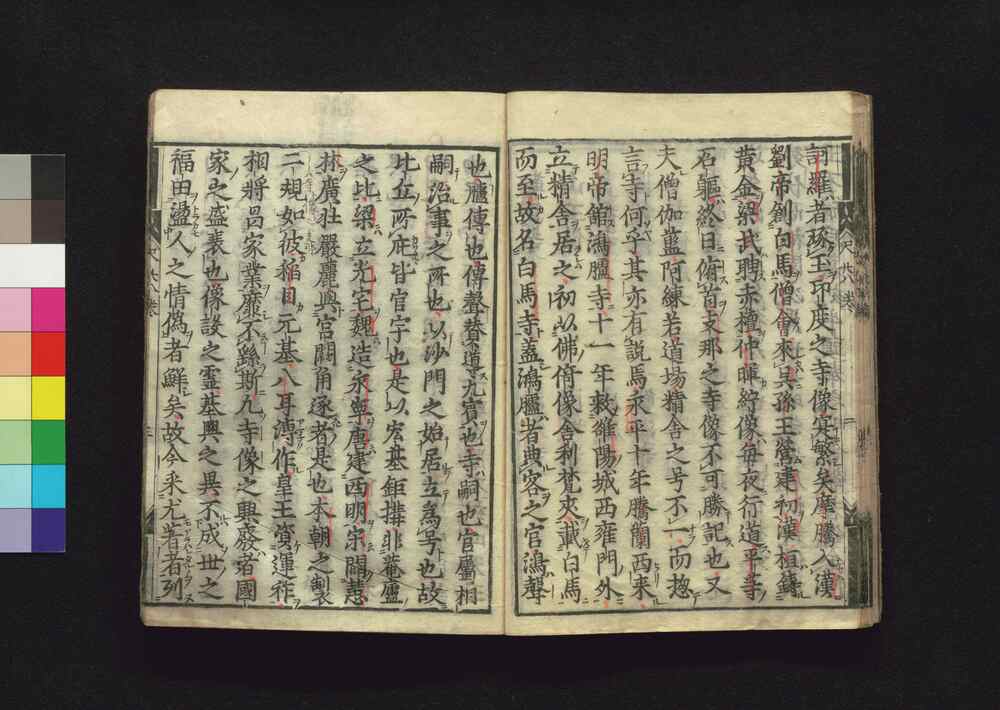 訶羅者琢玉印度之寺像寔繁矣摩騰入漢
劉帝創白馬僧會來呉孫王營建初漢桓鑄
黄金梁武聘赤檀仲暉紵像毎夜行道平等
石軀終日俯首支那之寺像不可勝記也又
夫僧伽藍阿練若道場精舍之号不一而惣
言寺何乎其亦有説焉永平十年騰蘭西來
明帝館鴻臚寺十一年敕雒陽城西雍門外
立精舍居之初以佛倚像舍利梵夾載白馬
而至故名白馬寺蓋鴻臚者典客之官鴻聲
也臚傳也傳聲贊導九賓也寺嗣也官屬相
嗣治事之所也以沙門之始居立為号也故
比丘所庇皆官字也是以宏基鉅構非菴廬
之比梁立光宅魏造永寧唐建西明宗闢慧
林廣壯嚴麗與宮闕角逐者是也本朝之製
二規如彼稲目元基八耳溥作皇王資運祚
相將昌家業靡不繇斯九寺像之興廢者國
家之盛衰也像設之靈基輿之異不成世之
福田盪人之情偽者鮮矣故今采尤著者列